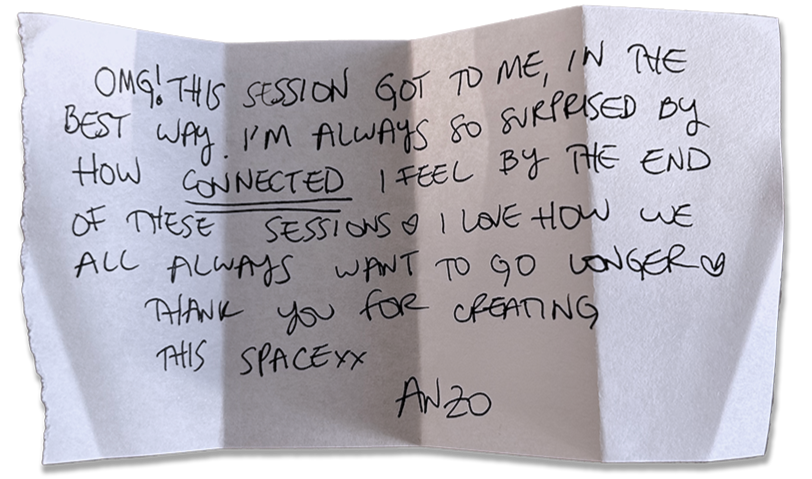 OMG! THIS SESSION GOT TO ME, IN THE
BEST WAY. I'M ALWAYS SO SURPRISED BY
HOW CONNECTED I FEEL BY THE END
OF THESE SESSIONS ♡ I LOVE HOW WE
ALL ALWAYS WANT TO GO LONGER ♡
THANK YOU FOR CREATING
THIS SPACE XX
ANZO